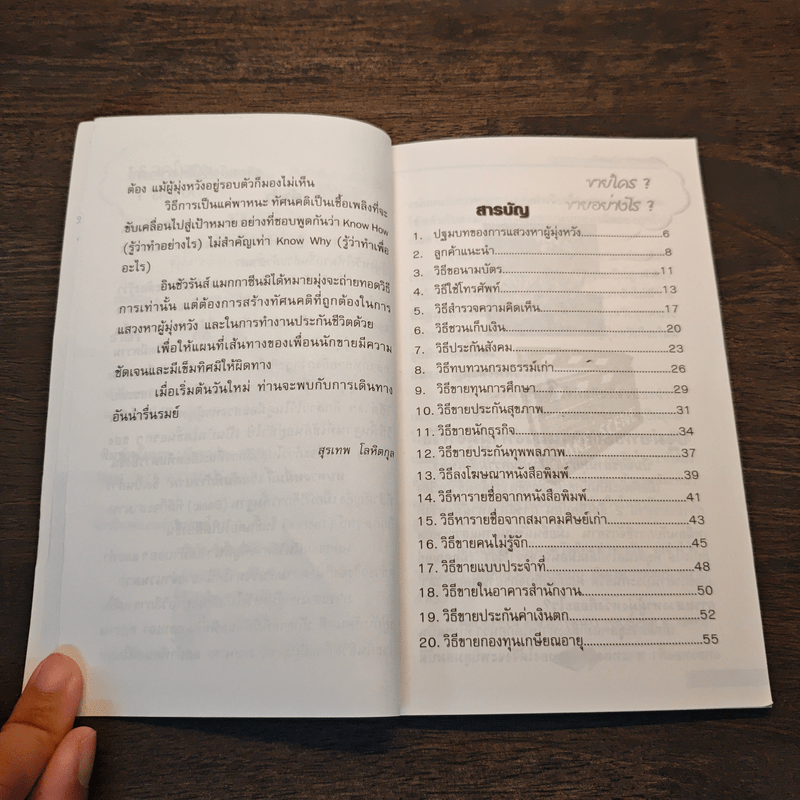 ต้อง แม้ผู้มุ่งหวังอยู่รอบตัวก็มองไม่เห็น
วิธีการเป็นแค่พาหนะ ทัศนคติเป็นเชื้อเพลิงที่จะ
ขับเคลื่อนไปสู่เป้าหมาย อย่างที่ชอบพูดกันว่า Know How
(รู้ว่าทำอย่างไร) ไม่สำคัญเท่า Know Why (รู้ว่าทำเพื่อ
อะไร)
อินชัวรันส์ แมกกาซีนมิได้หมายมุ่งจะถ่ายทอดวิธี
การเท่านั้น แต่ต้องการสร้างทัศนคติที่ถูกต้องในการ
แสวงหาผู้มุ่งหวัง และในการทำงานประกันชีวิตด้วย
เพื่อให้แผนที่เส้นทางของเพื่อนนักขายมีความ
ชัดเจนและมีเข็มทิศมิให้ผิดทาง
เมื่อเริ่มต้นวันใหม่ ท่านจะพบกับการเดินทาง
อันน่ารื่นรมย์
สุรเทพ โลหิตกุล
ขายใคร ?
ขายอย่างไร ?
สารบัญ
1. ปฐมบทของการแสวงหาผู้มุ่งหวัง.....................6
2. ลูกค้าแนะนำ.....................8
3. วิธีขอนามบัตร.....................11
4. วิธีใช้โทรศัพท์.....................13
5. วิธีสำรวจความคิดเห็น.....................17
6. วิธีชวนเก็บเงิน.....................20
7. วิธีประกันสังคม.....................23
8. วิธีทบทวนกรมธรรม์เก่า.....................26
9. วิธีขายทุนการศึกษา.....................29
10. วิธีขายประกันสุขภาพ.....................31
11. วิธีขายนักธุรกิจ.....................34
12. วิธีขายประกันทุพพลภาพ.....................37
13. วิธีลงโฆษณาหนังสือพิมพ์.....................39
14. วิธีหารายชื่อจากหนังสือพิมพ์.....................41
15. วิธีหารายชื่อจากสมาคมศิษย์เก่า.....................43
16. วิธีขายคนไม่รู้จัก.....................45
17. วิธีขายแบบประจำที่.....................48
18. วิธีขายในอาคารสำนักงาน.....................50
19. วิธีขายประกันค่าเงินตก.....................52
20. วิธีขายกองทุนเกษียณอายุ.....................55